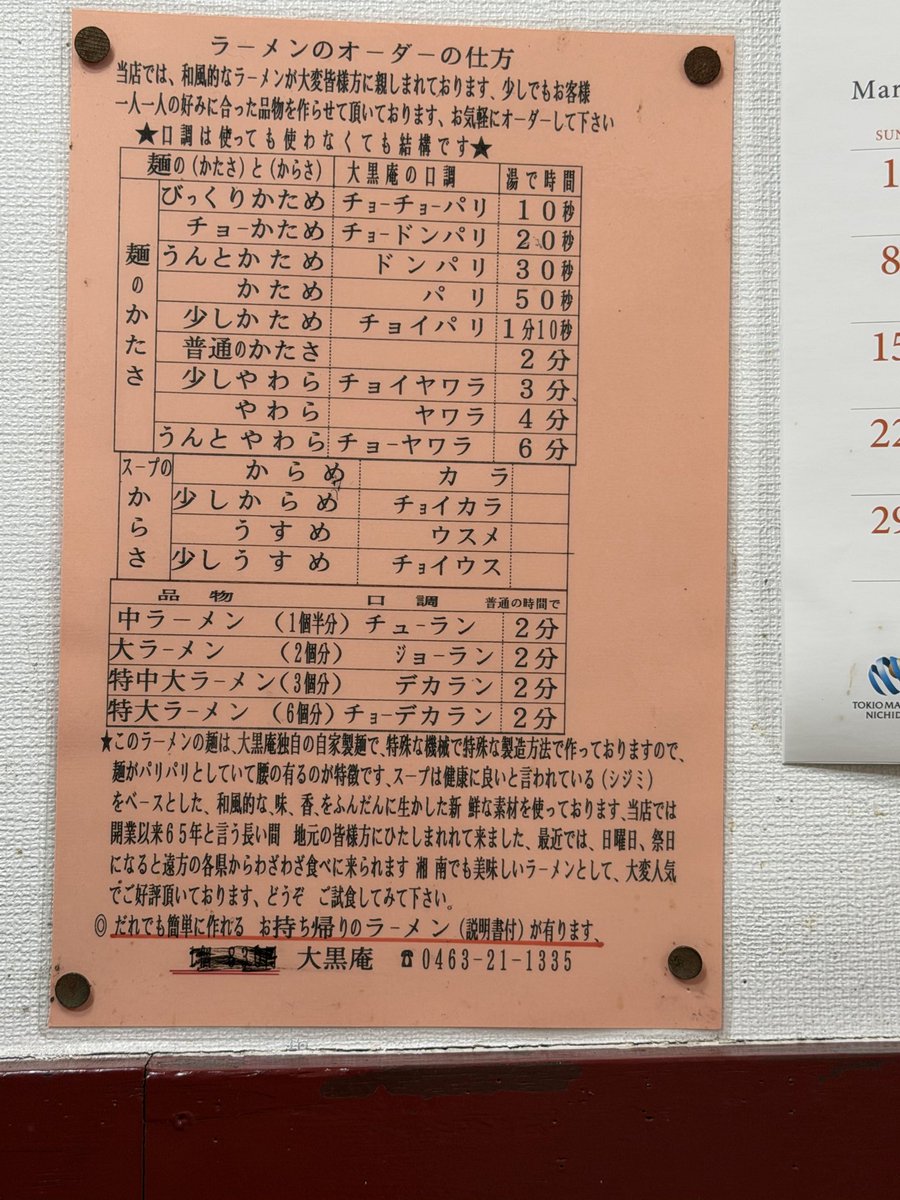 ラーメンのオーダーの仕方
当店では、和風的なラーメンが大変皆様方に親しまれております、少しでもお客様
一人一人の好みに合った品物を作らせて頂いております、お気軽にオーダーして下さい
★口調は使っても使わなくても結構です★
麺の(かたさ)と(からさ) 大黒庵の口調 湯で時間
麺のかたさ
びっくりかため チョーチョーパリ 10秒
チョーかため チョードンパリ 20秒
うんとかため ドンパリ 30秒
かため パリ 50秒
少しかため チョイパリ 1分10秒
普通のかたさ 2分
少しやわら チョイヤワラ 3分
やわら ヤワラ 4分
うんとやわら チョーヤワラ 6分
スープのからさ
からめ カラ
少しからめ チョイカラ
うすめ ウスメ
少しうすめ チョイウス
品物 口調 普通の時間で
中ラーメン (1個半分) チューラン 2分
大ラーメン (2個分) ジョーラン 2分
特中大ラーメン(3個分) デカラン 2分
特大ラーメン (6個分) チョーデカラン 2分
★このラーメンの麺は、大黒庵独自の自家製麺で、特殊な機械で特殊な製造方法で作っておりますので、
麺がパリパリとしていて腰の有るのが特徴です、スープは健康に良いと言われている(シジミ)
をベースとした、和風的な、味、香、をふんだんに生かした新 鮮な素材を使っております、当店では
開業以来65年と言う長い間 地元の皆様方にひたしまれれて来ました、最近では、日曜日、祭日
になると遠方の各県からわざわざ食べに来られます 湘 南でも美味しいラーメンとして、大変人気
でご好評頂いております、どうぞ ご試食してみて下さい。
◎だれでも簡単に作れる お持ち帰りのラーメン(説明書付)が有ります、
大黒庵 ☎0463-21-1335
Mar
SUN
1
8
15
22
29
TOKIO MA
NICHID